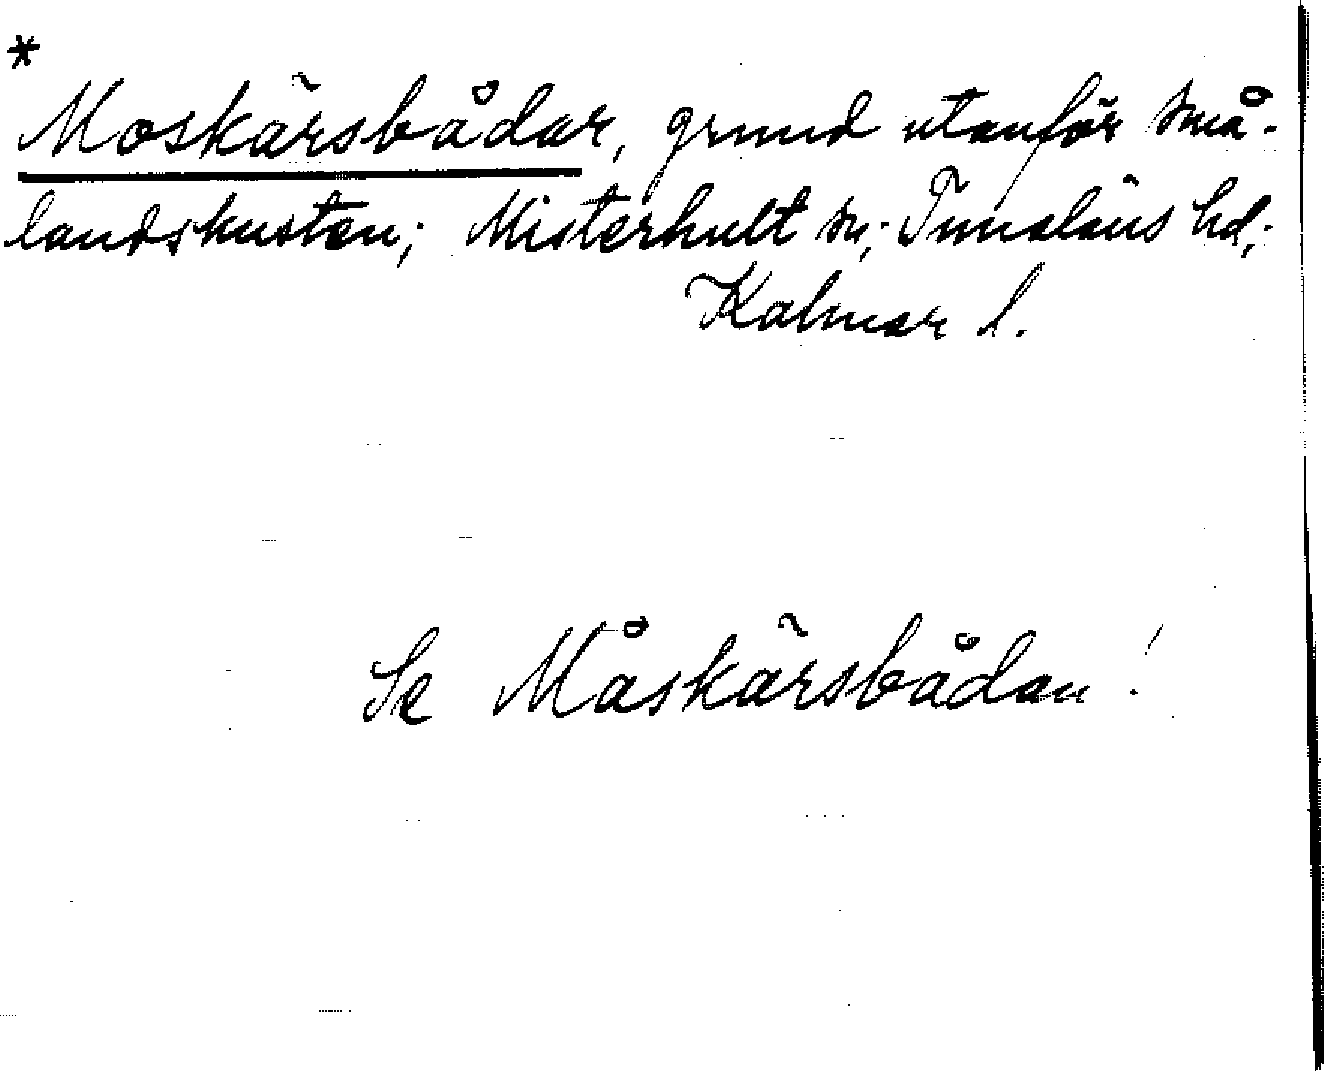 *
Moskärsbådar, grund utanför små-
landskusten; Misterhult sn; Tunaläns hd;
Kalmar l.
Se Måskärsbådan!